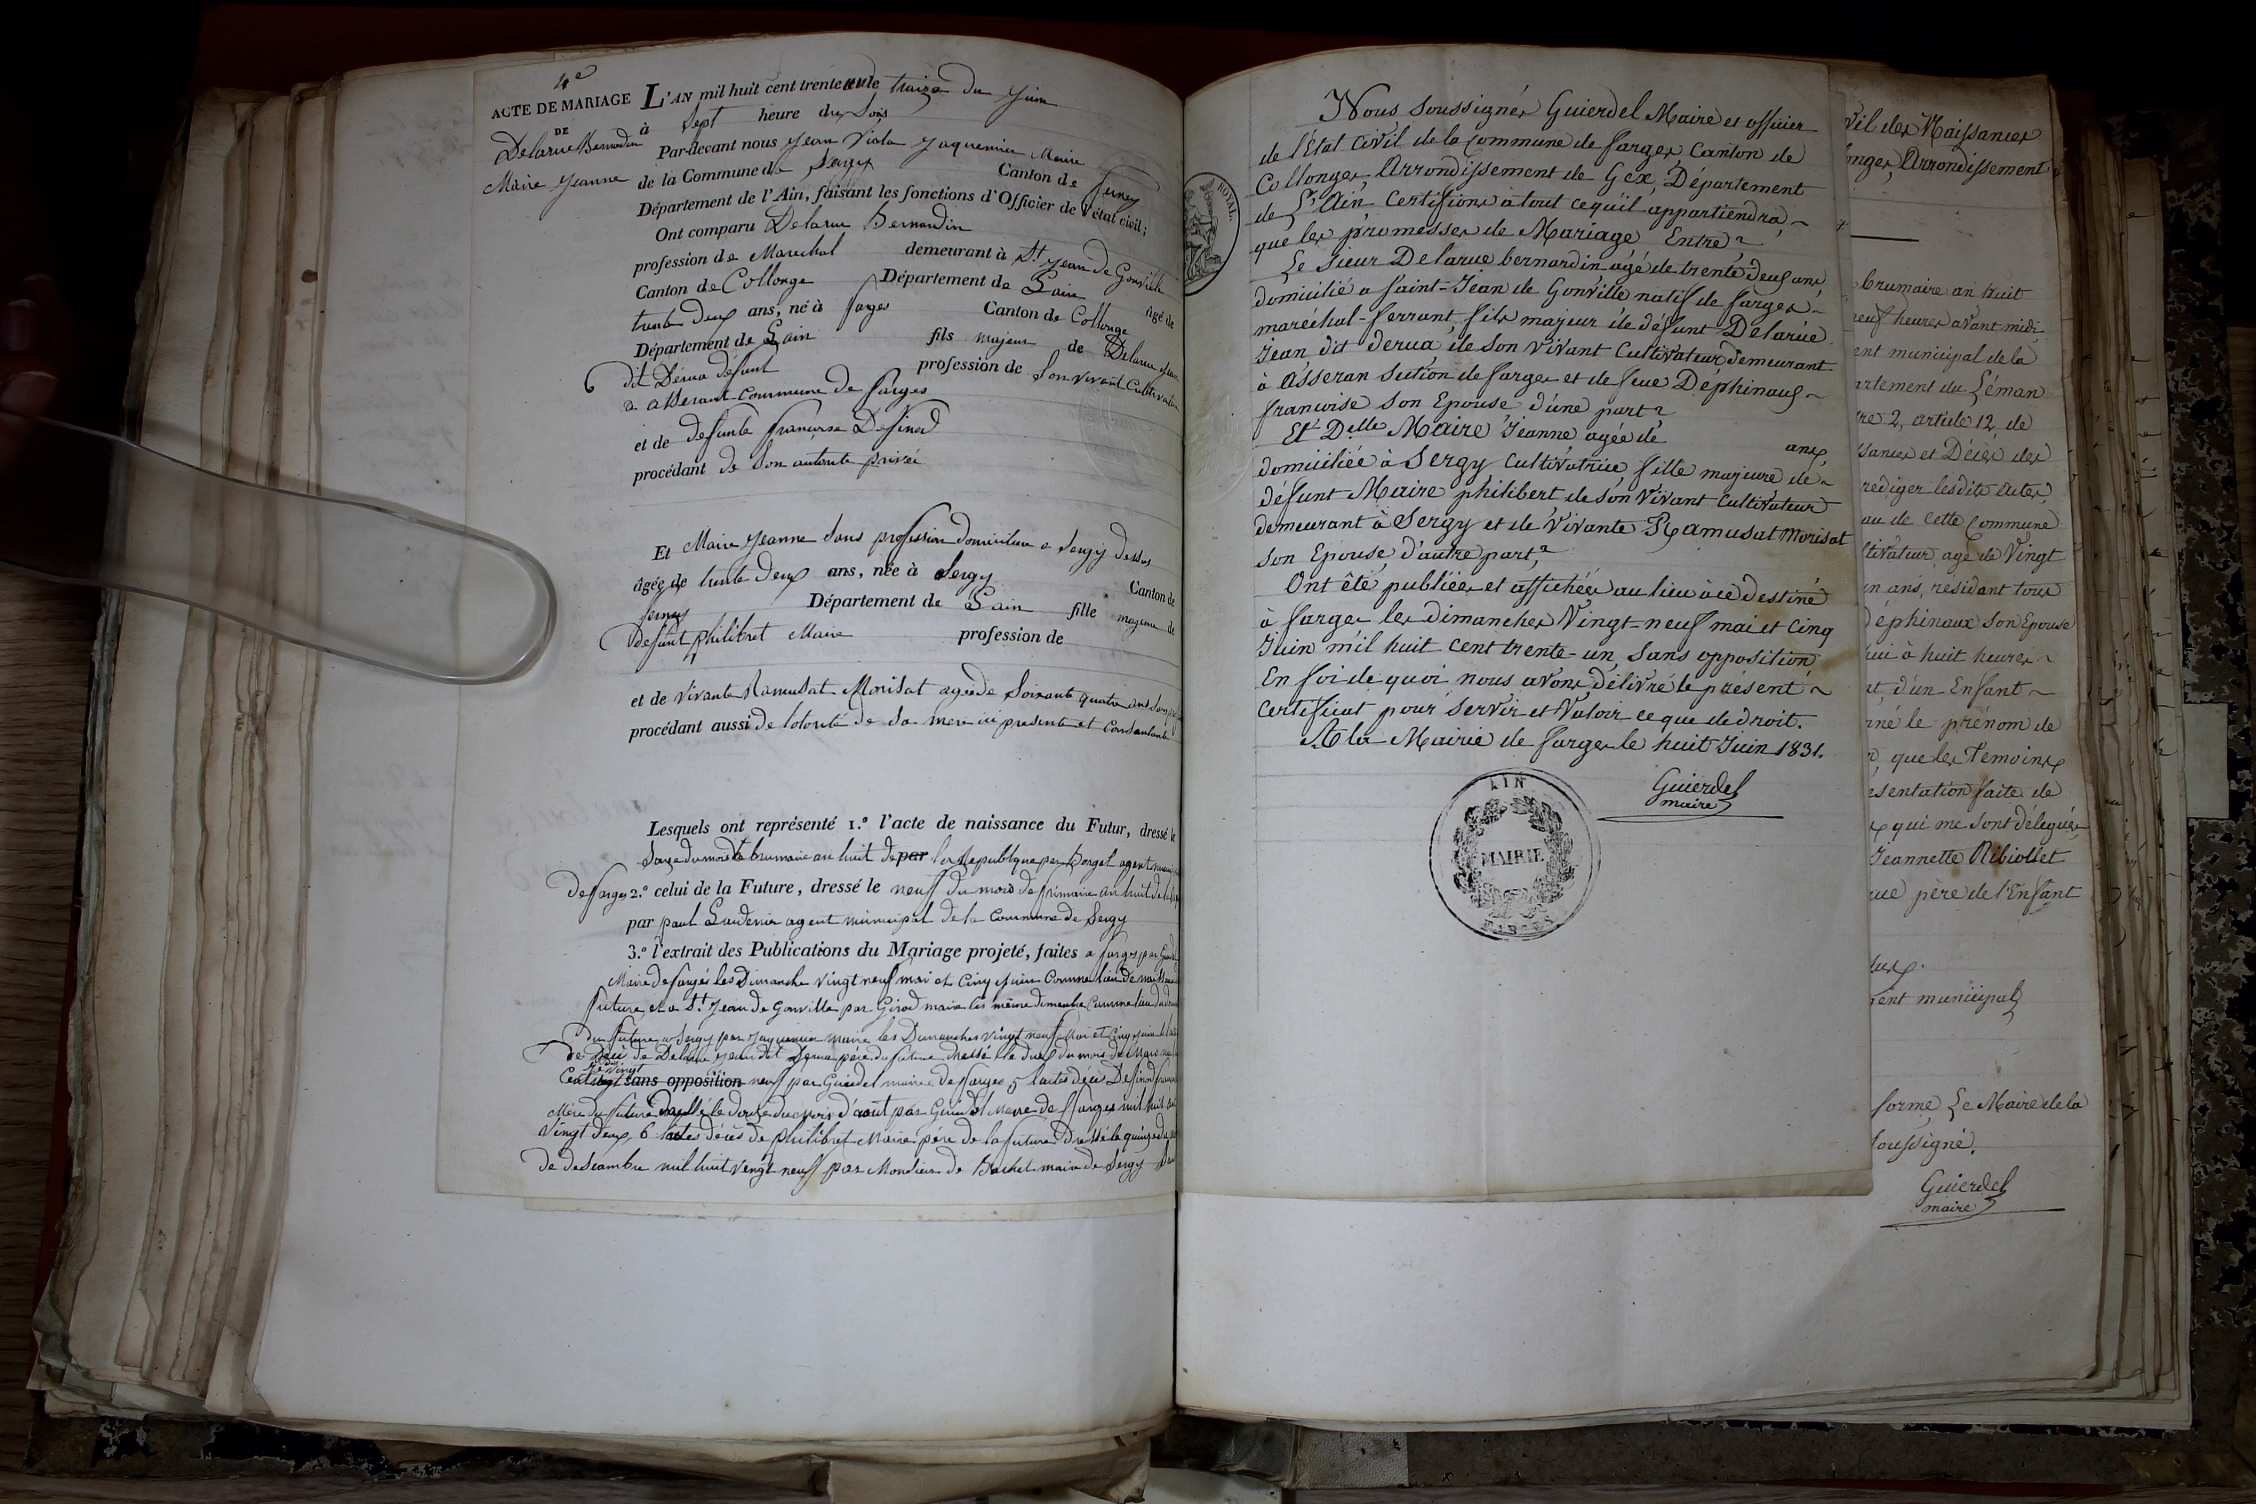 4e
ACTE DE MARIAGE
DE
Delarue Bernardin
Maire Jeanne
L'AN mil huit cent trente un le traize du Juin
à sept heure du Soir
Par-devant nous Jean Viola Jaquemier Maire
de la Commune de Sergy Canton de Ferney
Département de l'Ain, faisant les fonctions d'Officier de l'état civil;
Ont comparu Delarue Bernardin
profession de Marechal demeurant à St Jean de Gonville
Canton de Collonge Département de Lain âgé de
trente deux ans, né à farges Canton de Collonge
Département de Lain fils majeur de Delarue Jean
dit Derua défunt profession de Son vivant Cultivateur
a asserant Commune de farges
et de defunte françoise Definod
procédant de Son autorité privée
Et Maire Jeanne Sans profession domiciliee a Sergy dessus
âgée de trente deux ans, née à Sergy Canton de
ferney Département de Lain fille majeure de
defunt philibret Maire profession de
et de vivante Ramusat Morisat agee de Soixante quatre ans
procédant aussi de lotorité de Sa mere ici presente et Consentante
Lesquels ont représenté 1.º l'acte de naissance du Futur, dressé le
Saize du mois de brumaire an huit de par la Republique par Borgel agent municipal
de farges 2.º celui de la Future, dressé le neuf du mois de frimaire an huit de la
par paul Laudenier agent municipal de la Commune de Sergy
3.º l'extrait des Publications du Mariage projeté, faites a farges par
Maire de farges les Dimanche vingt neuf mai et Cinq Juin Comme lieu de
future et a St Jean de Gonville par Girod maire les même dimanche Comme lieu
du future a Sergy par Jaquemier maire les Dimanches vingt neuf Mai et Cinq Juin
de Déci de Delarue Jean dit Derua pére du future dressé le du mois de Mars
vingt
sans opposition neuf par Guierdel maire de farges 5 lactes déci Definod
Mère du future le douze du mois d'août par Guierdel Maire de farges mil huit
vingt deux 6 lactes décès de philibret Maire pére de la future dressé le quinze du
de desambre mil huit vengt neuf par Monsieur de Bachet maire de Sergy
ROYAL
Nous soussignés Guierdel Maire et officier
de l'État civil de la Commune de farges Canton de
Collonges, Arrondissement de Gex, Département
de l'Ain Certifions à tout ce qu'il appartiendra,
que les promesses de Mariage Entre
Le Sieur Delarue bernardin âgé de trente deux ans
domicilié a Saint-Jean de Gonville natif de farges
maréchal-ferrant fils majeur de défunt Delarue
Jean dit Derua de son vivant Cultivateur demeurant
à Asseran section de farges et de feue Déphinaux
françoise son Epouse d'une part
Et Delle Maire Jeanne agée de ans,
domiciliée à Sergy Cultivatrice fille majeure de
défunt Maire philibert de son vivant Cultivateur
demeurant à Sergy et de Vivante Ramusat Morisat
son Epouse, d'autre part,
Ont été publiées et affichées au lieu à ce destiné
à farges les dimanches Vingt-neuf mai et Cinq
Juin mil huit cent trente-un, sans opposition
En foi de quoi nous avons délivré le présent
Certificat pour servir et Valoir ce que de droit.
A la Mairie de farges le huit Juin 1831.
Guierdel
maire
AIN
MAIRIE
vil des Naissances
onges, Arrondissement
brumaire an huit
neuf heures avant midi
ent municipal de la
artement du Léman
tre 2, article 12, de
ssances et Décès des
rediger lesdits actes,
au de cette commune
ltivateur, agé de Vingt
n ans, résidant tous
Déphinaux son Epouse
hui à huit heures
et d'un Enfant
nné le prénom de
que les Temoins
ésentation faite de
qui me sont délégués
Jeannette Ribiollet
rue père de l'Enfant
ent municipal
forme, Le Maire de la
soussigné,
Guierdel
maire